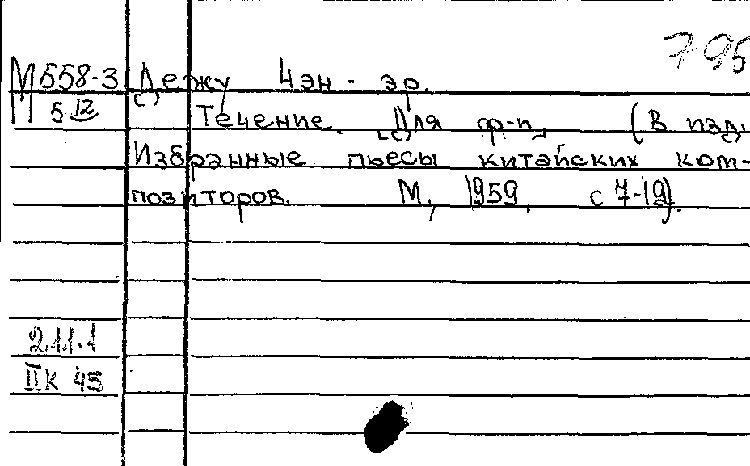 795
М558-3 Дежу Чэн-эр.
5 12 Течение. Для ф-п. (В изд.
Избранные пьесы китайских ком-
позиторов. М., 1959, с 7-19).
2.1.1.1
IIК 45